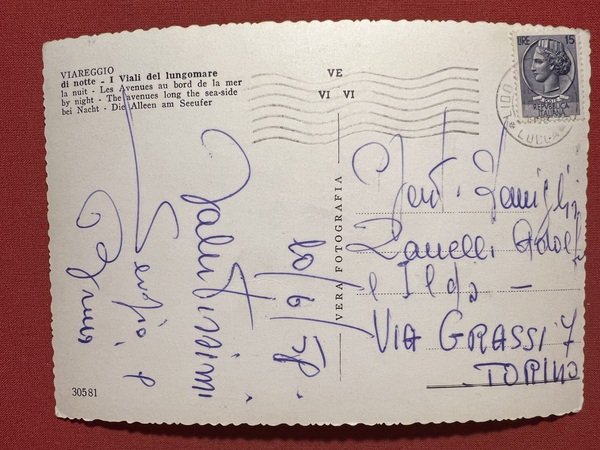 VIAREGGIO
di notte - I Viali del lungomare
la nuit - Les Avenues au bord de la mer
by night - The avenues long the sea-side
bei Nacht - Die Alleen am Seeufer
VE
VI VI
LIRE 15
REPVBBLICA
ITALIANA
LIDO
LUCCA
VERA FOTOGRAFIA
20/6/58.
Salutissimi
Sergio e
Bruna
Famiglia
Zanelli
e Ilda -
VIA GRASSI 7
TORINO
30581